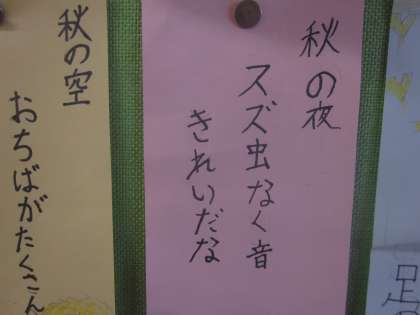 秋の夜
スズ虫なく音
きれいだな
秋の空
おちばがたくさん